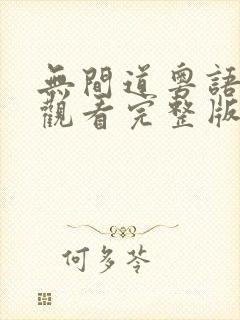 無間道粵語
觀看完整版
何多苓